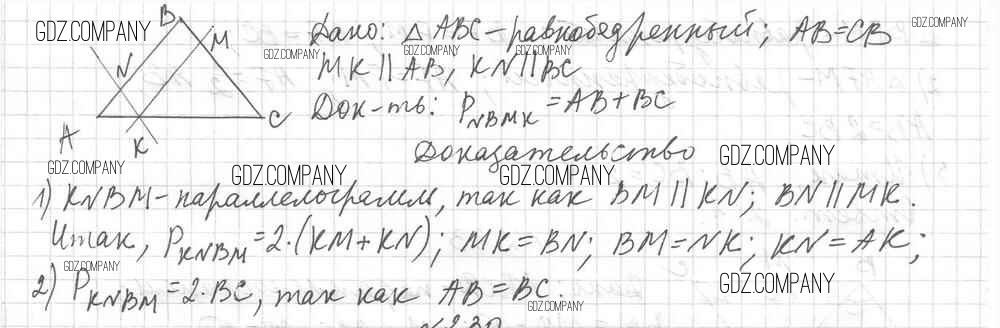 GDZ.COMPANY
B
M
N
A
K
C
Дано: △ ABC - равнобедренный; AB=CB
GDZ.COMPANY
GDZ.COMPANY
GDZ.COMPANY
GDZ.COMPANY
MK || AB, KN || BC
Док-ть: P_NBMK = AB + BC
Доказательство
GDZ.COMPANY
GDZ.COMPANY
GDZ.COMPANY
GDZ.COMPANY
1) KNBM - параллелограмм, так как BM || KN; BN || MK.
Итак, P_KNBM = 2·(KM + KN); MK = BN; BM = NK; KN = AK;
GDZ.COMPANY
GDZ.COMPANY
2) P_KNBM = 2·BC, так как AB = BC.
GDZ.COMPANY